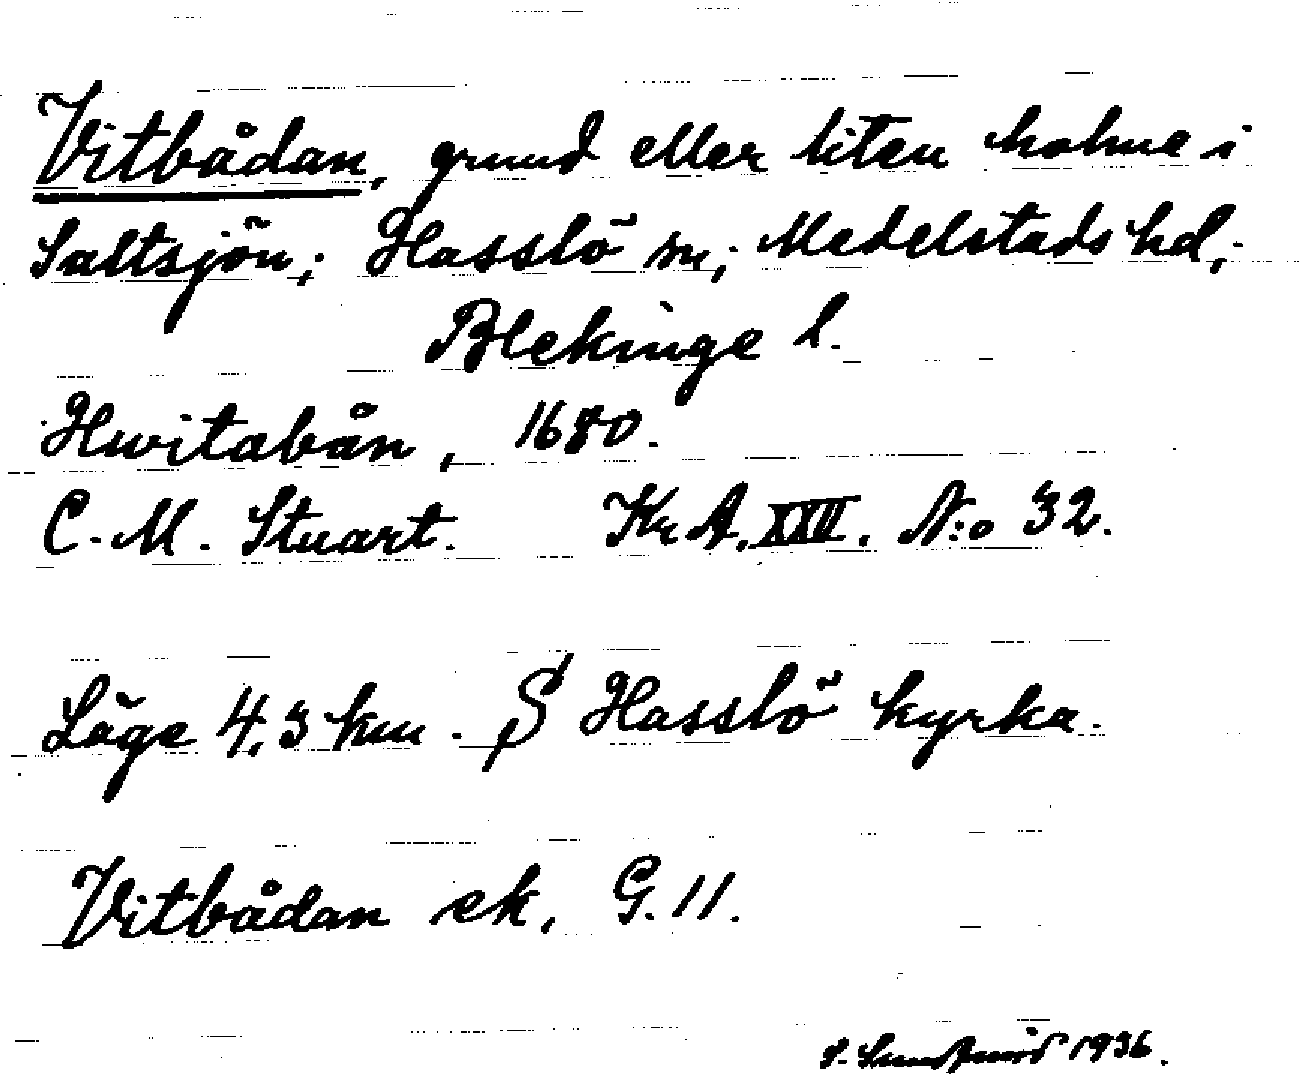 Vitbådan, grund eller liten holme i
Saltsjön; Hasslö sn; Medelstads hd;
Blekinge l.
Hwitabån, 1680.
C. M. Stuart. Kr A. XXII. N:o 32.
Läge 4,3 km. S Hasslö kyrka.
Vitbådan ek. G. 11.
1936.